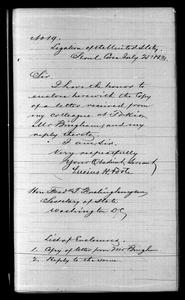 No 19.
Legation of the United States,
Seoul, Corea July 21 1883.
Sir
I have the honor to
enclose herewith the copy
of a letter received from
my colleague at Tokio,
Mr Bingham, and my
reply thereto.
I am Sir,
Very respectfully
Your Obedient Servant
Lucius H. Foote
Hon. Fred T. Frelinghuysen,
Secretary of State
Washington D.C.
List of Enclosures.
1. Copy of letter from Mr Bingham
2. Reply to the same